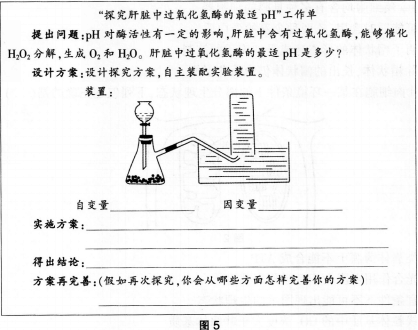 “探究肝脏中过氧化氢酶的最适 pH”工作单
提出问题:pH 对酶活性有一定的影响,肝脏中含有过氧化氢酶,能够催化
H₂O₂ 分解,生成 O₂ 和 H₂O。肝脏中过氧化氢酶的最适 pH 是多少?
设计方案:设计探究方案,自主装配实验装置。
装置:
自变量 因变量
实施方案:
得出结论:
方案再完善:(假如再次探究,你会从哪些方面怎样完善你的方案)
图 5